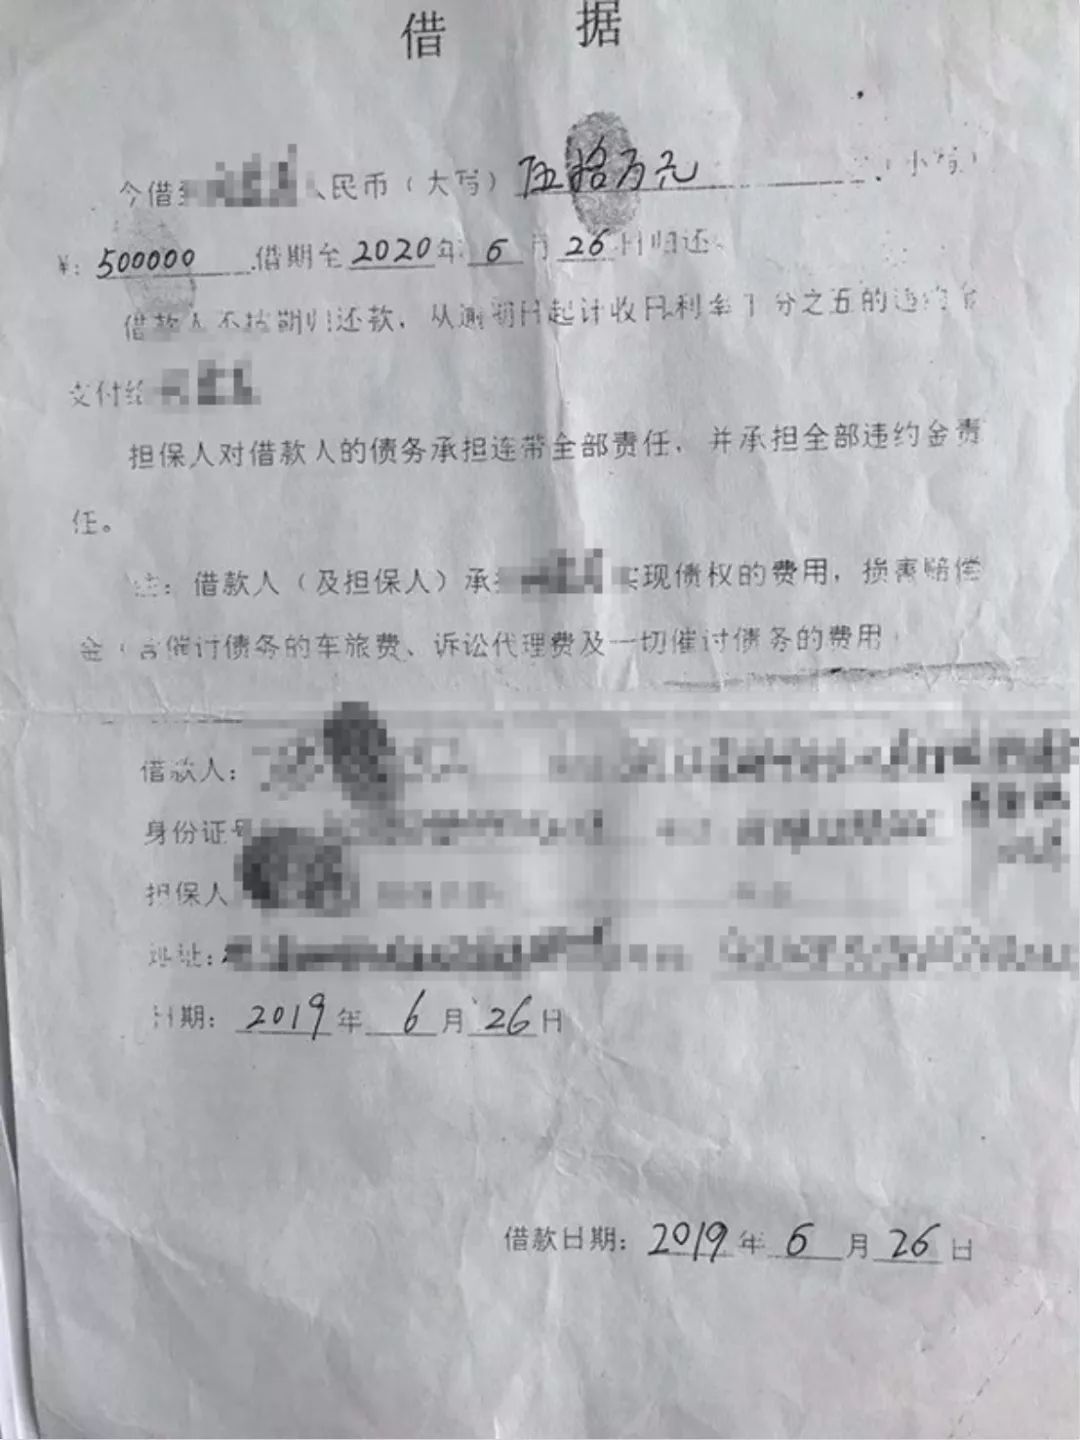 借 据
今借 人民币（大写）伍拾万元 （小写）
¥：500000 借期至2020年6月26日归还
借款人不按期归还款，从逾期日起计收日利率千分之五的违约金
交付给
担保人对借款人的债务承担连带全部责任，并承担全部违约金责
任。
注：借款人（及担保人）承 实现债权的费用，损害赔偿
金（含催讨债务的车旅费、诉讼代理费及一切催讨债务的费用）
借款人：
身份证号
担保人
地址：
日期：2019年6月26日
借款日期：2019年6月26日